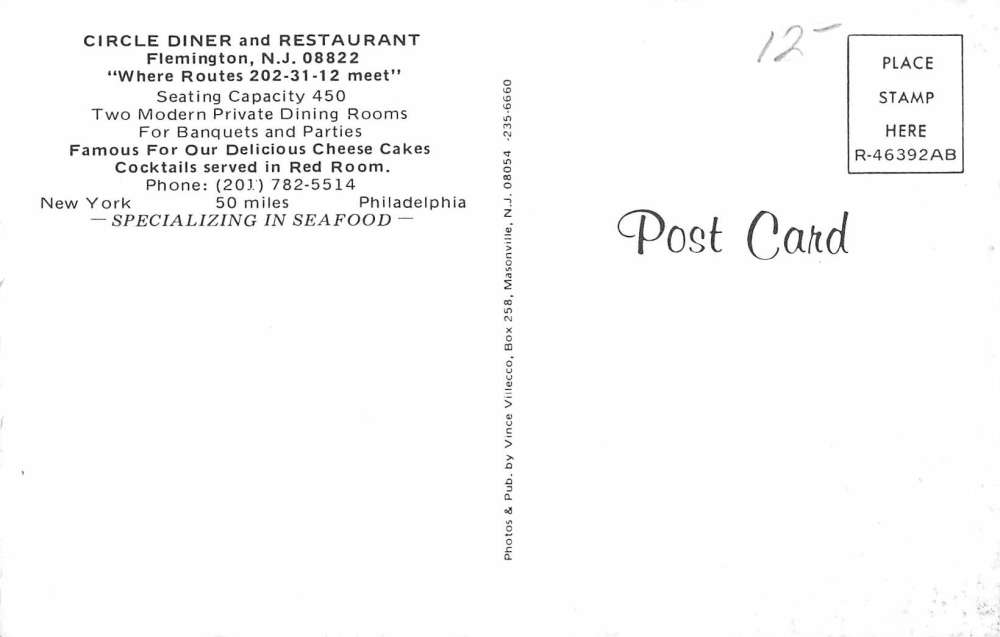 CIRCLE DINER and RESTAURANT
Flemington, N.J. 08822
"Where Routes 202-31-12 meet"
Seating Capacity 450
Two Modern Private Dining Rooms
For Banquets and Parties
Famous For Our Delicious Cheese Cakes
Cocktails served in Red Room.
Phone: (201) 782-5514
New York 50 miles Philadelphia
— SPECIALIZING IN SEAFOOD —
Photos & Pub. by Vince Villecco, Box 258, Masonville, N.J. 08054 -235-6660
12-
PLACE
STAMP
HERE
R-46392AB
Post Card